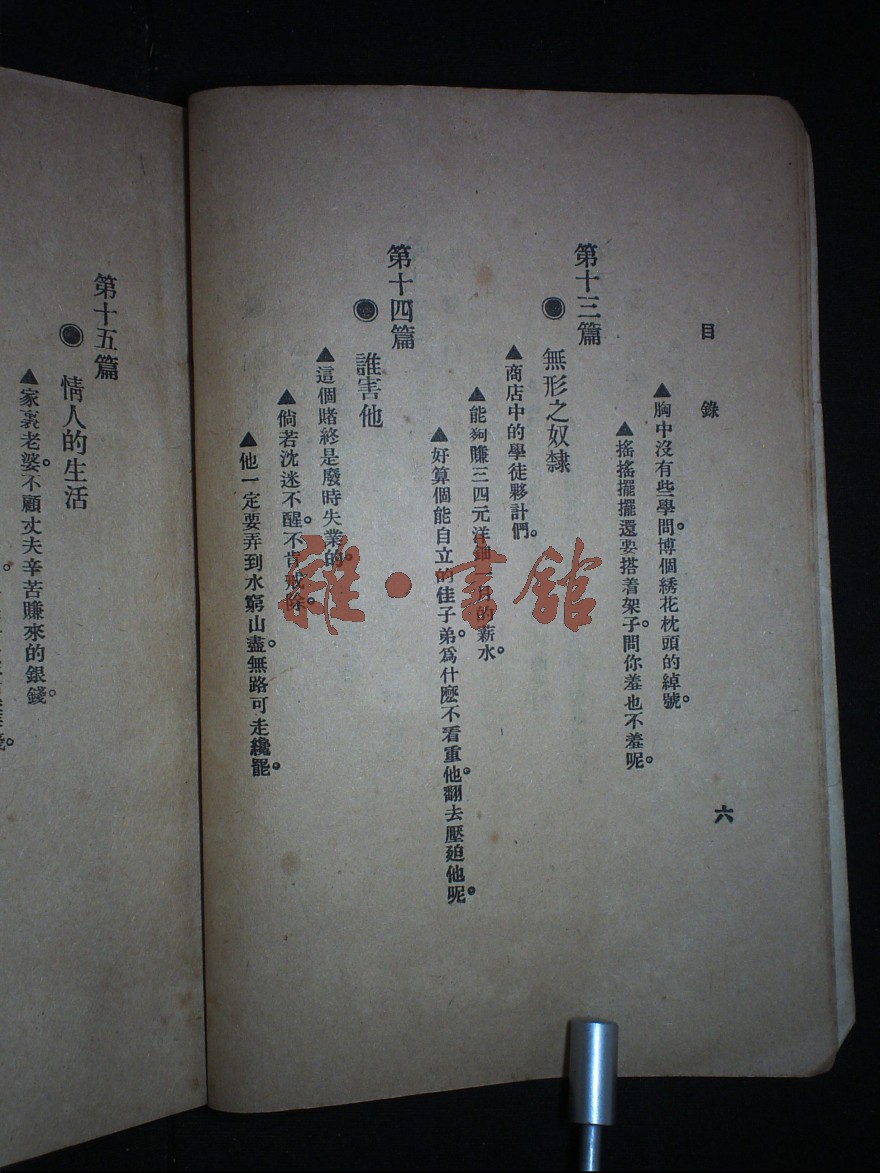 目錄
▲胸中沒有些學問。博個綉花枕頭的綽號。
▲搖搖擺擺還要搭着架子。問你羞也不羞呢。
第十三篇
◉無形之奴隸
▲商店中的學徒夥計們。
▲能夠賺三四元洋鈿一月的薪水。
▲好算個能自立的佳子弟。爲什麽不看重他。翻去壓廹他呢。
第十四篇
◉誰害他
▲這個賭終是廢時失業的。
▲倘若沈迷不醒。不肯戒除。
▲他一定要弄到水窮山盡。無路可走纔罷。
六
第十五篇
◉情人的生活
▲家裏老婆。不顧丈夫辛苦賺來的銀錢。
雜·書館